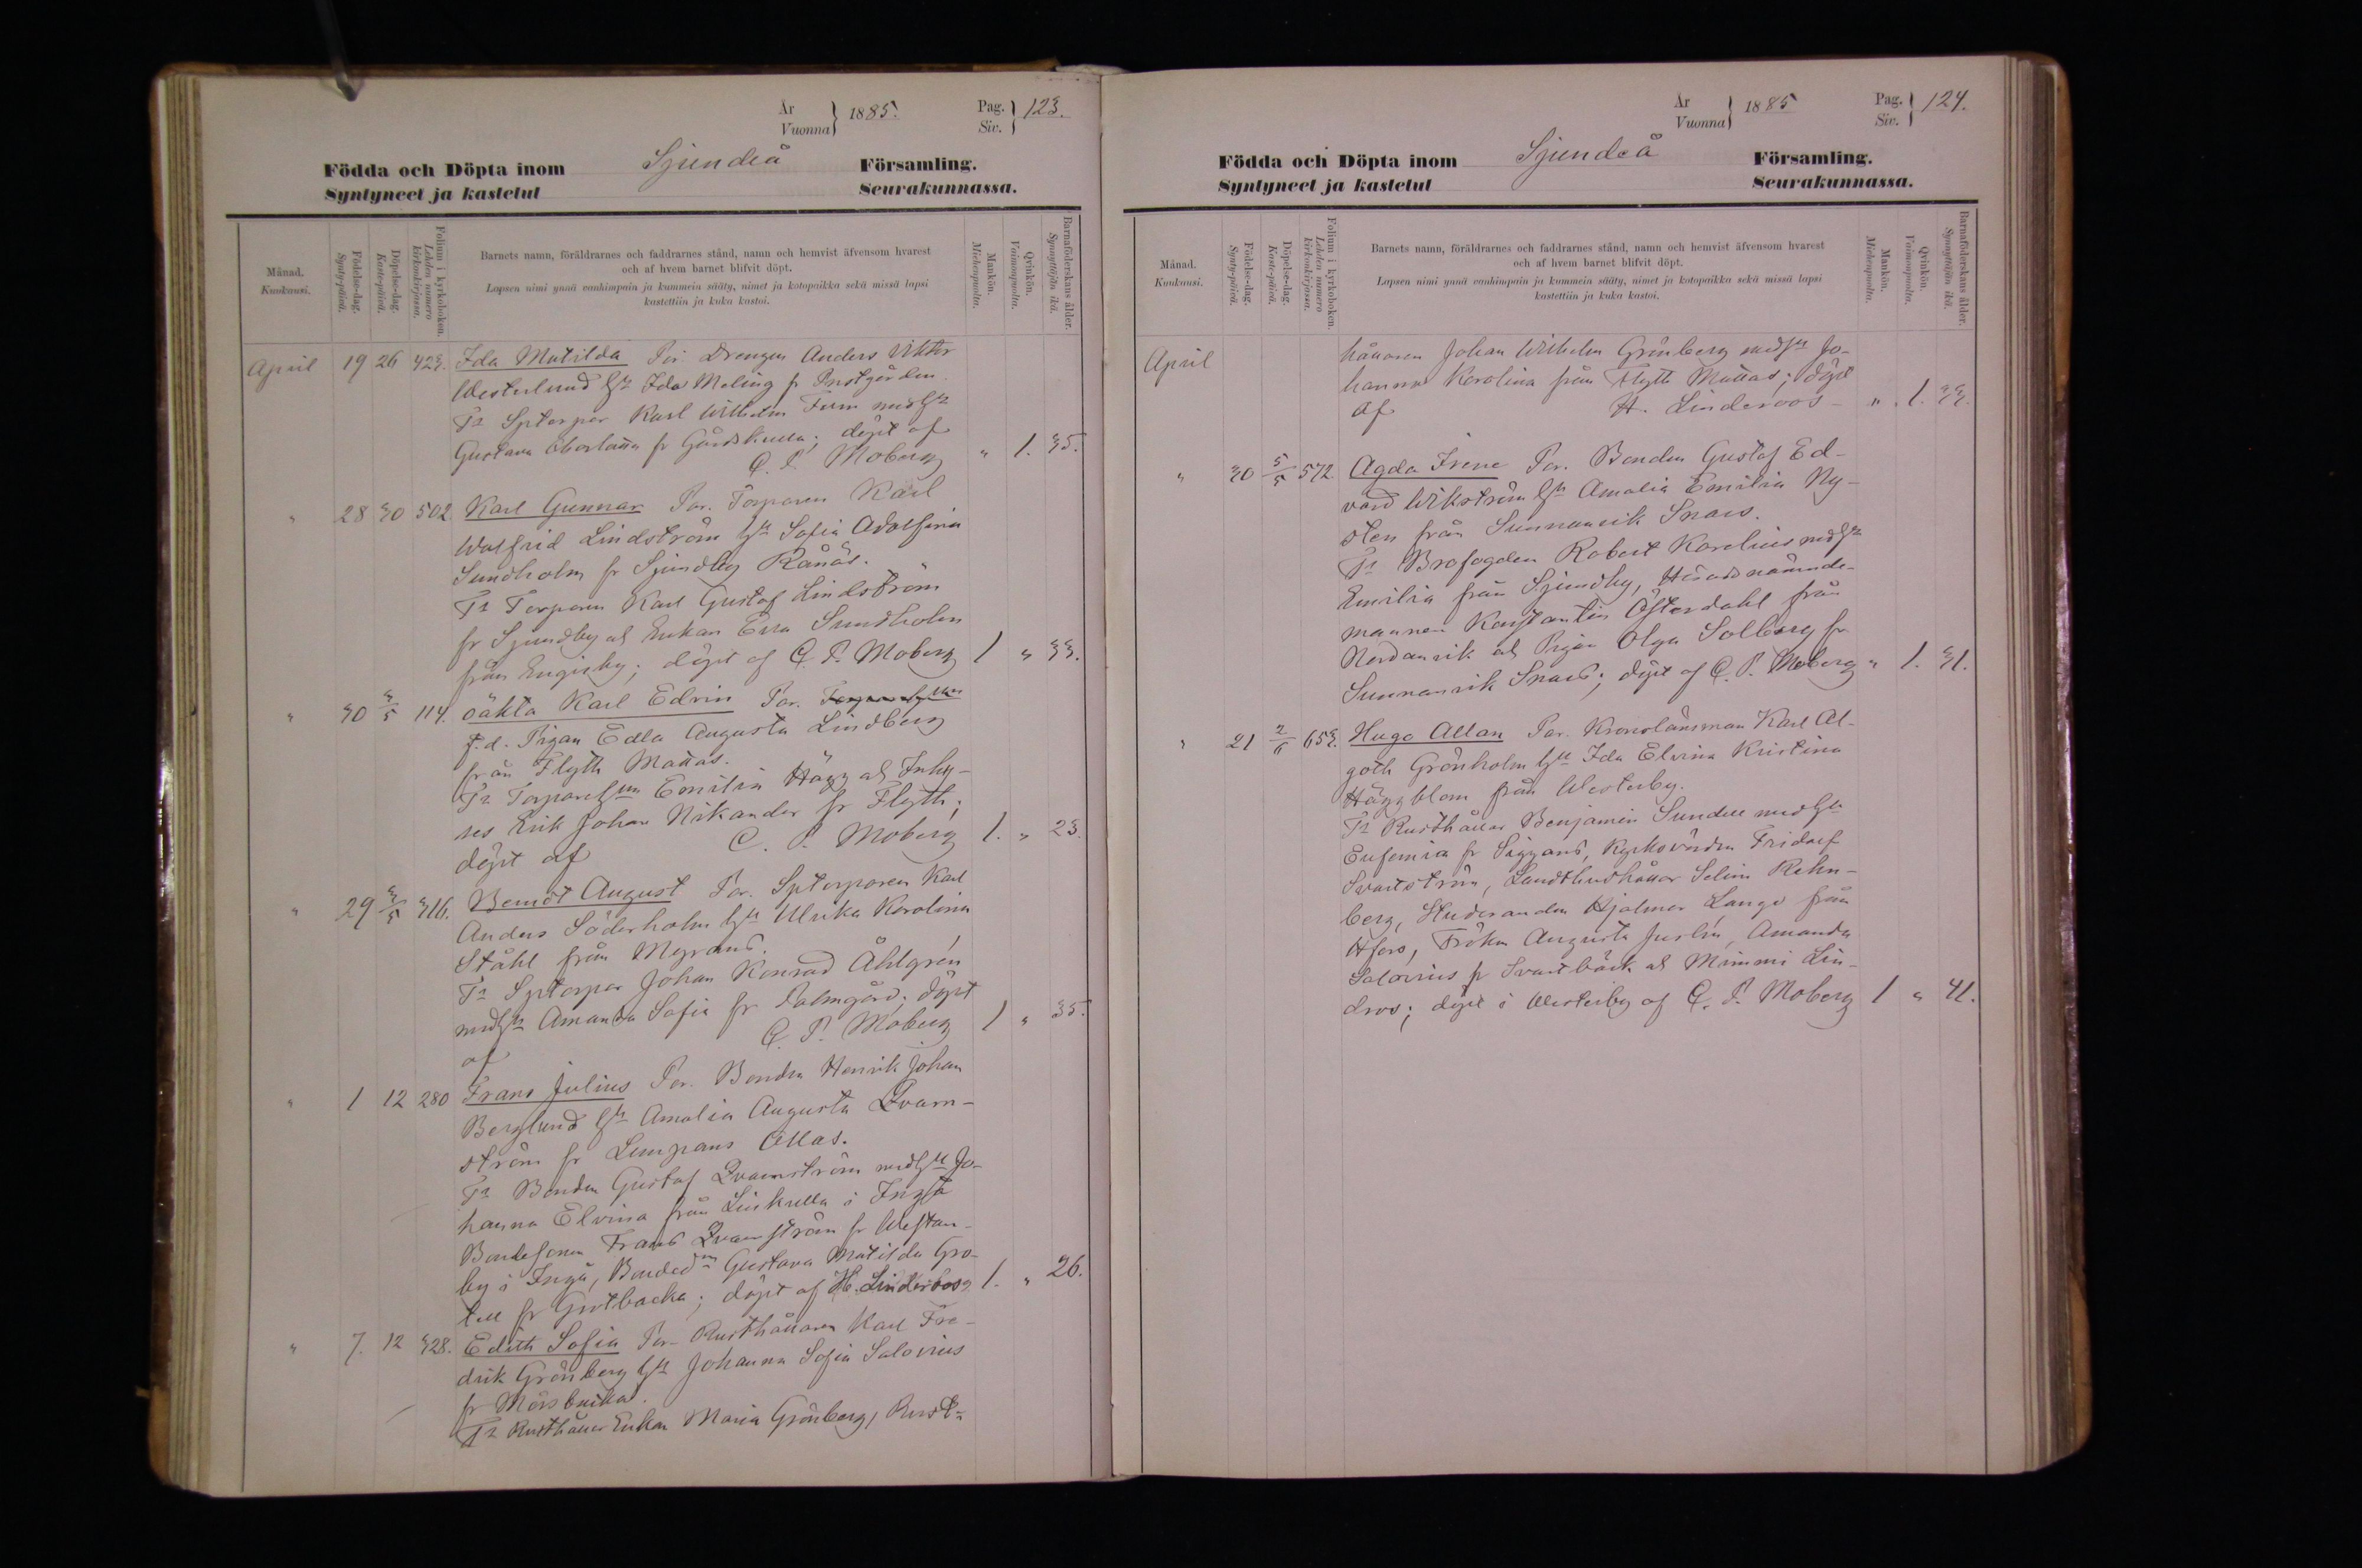 År
Vuonna } 1885. Pag.
Siv. } 123.
Födda och Döpta inom Sjundeå Församling.
Syntyneet ja kastetut Seurakunnassa.
Månad.
Kuukausi.
Födelse-dag.
Synty-päivä.
Döpelse-dag.
Kaste-päivä.
Folium i kyrkoboken.
Lehden numero kirkonkirjassa.
Barnets namn, föräldrarnes och faddrarnes stånd, namn och hemvist äfvensom hvarest
och af hvem barnet blifvit döpt.
Lapsen nimi ynnä vanhimpain ja kummein sääty, nimet ja kotopaikka sekä missä lapsi
kastettiin ja kuka kastoi.
Mankön.
Miehenpuolta.
Qvinkön.
Vaimonpuolta.
Barnaföderskans ålder.
Synnyttäjän ikä.
April 19 26 423. Ida Matilda Par. Drengen Anders Viktor
Westerlund hu Ida Meling fr Prestgården.
Fr Sptorpar Karl Wilhelm Furu med hu
Gustava fr Gårdskulla; döpt af
C. P. Moberg " 1. 35.
" 28 30 502. Karl Gunnar Par. Torparen Karl
Walfrid Lindström hu Sofia Adolfina
Sundholm fr Sjundby Rånäs.
Fr Torparen Karl Gustaf Lindström
fr Sjundby ch Enkan Eva Sundholm
från Engisby; döpt af C. P. Moberg 1 " 33.
" 30 3/5 114. oäkta Karl Edvin Par.
f.d. Pigan Edla Augusta Lindberg
från Flyth Mattas.
Fr Torpareh Emilia Hägg ch Inhy-
ses Erik Johan Nikander fr Flyth;
döpt af C. P. Moberg 1. " 23.
" 29 3/5 316. Berndt August Par. Sptorparen Karl
Anders Söderholm hu Ulrika Karolina
Ståhl från Myrans.
Fr Sptorpar Johan Konrad Åhlgrén
med hu Amanda Sofia fr Palmgård; döpt
af C. P. Moberg 1 " 35.
" 1 12 280 Frans Julius Par. Bonden Henrik Johan
Berglund hu Amalia Augusta Qvarn-
ström fr Lempans Allas.
Fr Bonden Gustaf Qvarnström med hu Jo-
hanna Elvina från Linkulla i Ingå
Bondesonen Frans Qvarnström fr Westan-
by i Ingå, Bonded Gustava Matilda Gro-
tell fr Grotbacka; döpt af H. Linderoos 1. " 26.
" 7. 12 328. Edith Sofia Par. Rusthållaren Karl Fre-
drik Grönberg hu Johanna Sofia Salovius
fr Mörsbacka.
Fr Rusthållar Enkan Maria Grönberg, Rust-
År
Vuonna } 1885 Pag.
Siv. } 124.
Födda och Döpta inom Sjundeå Församling.
Syntyneet ja kastetut Seurakunnassa.
Månad.
Kuukausi.
Födelse-dag.
Synty-päivä.
Döpelse-dag.
Kaste-päivä.
Folium i kyrkoboken.
Lehden numero kirkonkirjassa.
Barnets namn, föräldrarnes och faddrarnes stånd, namn och hemvist äfvensom hvarest
och af hvem barnet blifvit döpt.
Lapsen nimi ynnä vanhimpain ja kummein sääty, nimet ja kotopaikka sekä missä lapsi
kastettiin ja kuka kastoi.
Mankön.
Miehenpuolta.
Qvinkön.
Vaimonpuolta.
Barnaföderskans ålder.
Synnyttäjän ikä.
April hållaren Johan Wilhelm Grönberg med hu Jo-
hanna Karolina från Flyth Mattas; döpt
af H. Linderoos - " . 1. 33.
" 30 5/5 572 Agda Irene Par. Bonden Gustaf Ed-
vard Wikström hu Amalia Emilia Ny-
sten från Sunnanvik Snars.
Fr Brofogden Robert Karelius med hu
Emilia från Sjundby, Häradsnämnde-
mannen Konstantin Österdahl från
Nordanvik ch Pigan Olga Solberg fr
Sunnanvik Snars; döpt af C. P. Moberg " 1. 31.
" 21 2/6 653. Hugo Allan Par. Kronolänsman Karl Al-
goth Grönholm hu Ida Elvina Kristina
Häggblom från Westerby.
Fr Rusthållar Benjamin Sundell med hu
Eufemia fr Siggans, Kyrkovärden Fridolf
Svartström, Landthushållar Selim Rehn-
berg, Studeranden Hjalmar Lange från
Hfors, Fröken Augusta Juslin, Amanda
Salovius fr Svartbäck ch Mimmi Lin-
droos; döpt i Westerby af C. P. Moberg 1 " 41.